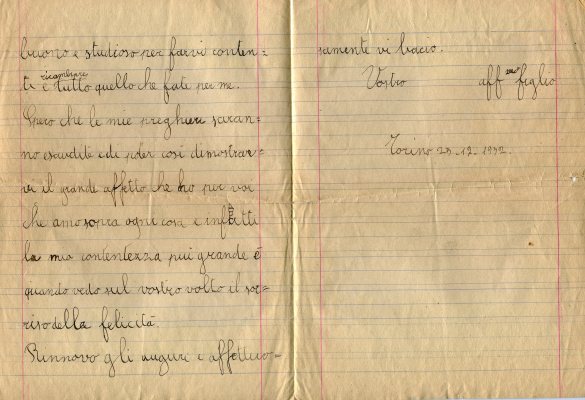 buono e studioso per farvi conten=
ti e ricambiare tutto quello che fate per me.
Spero che le mie preghiere saran=
no esaudite e di poter così dimostrar=
vi il grande affetto che ho per voi
che amo sopra ogni cosa e infatti
la mia contentezza più grande è
quando vedo sul vostro volto il sor=
riso della felicità.
Rinnovo gli auguri e affettuo=
samente vi bacio.
Vostro aff mo figlio
Torino 25-12-1932.